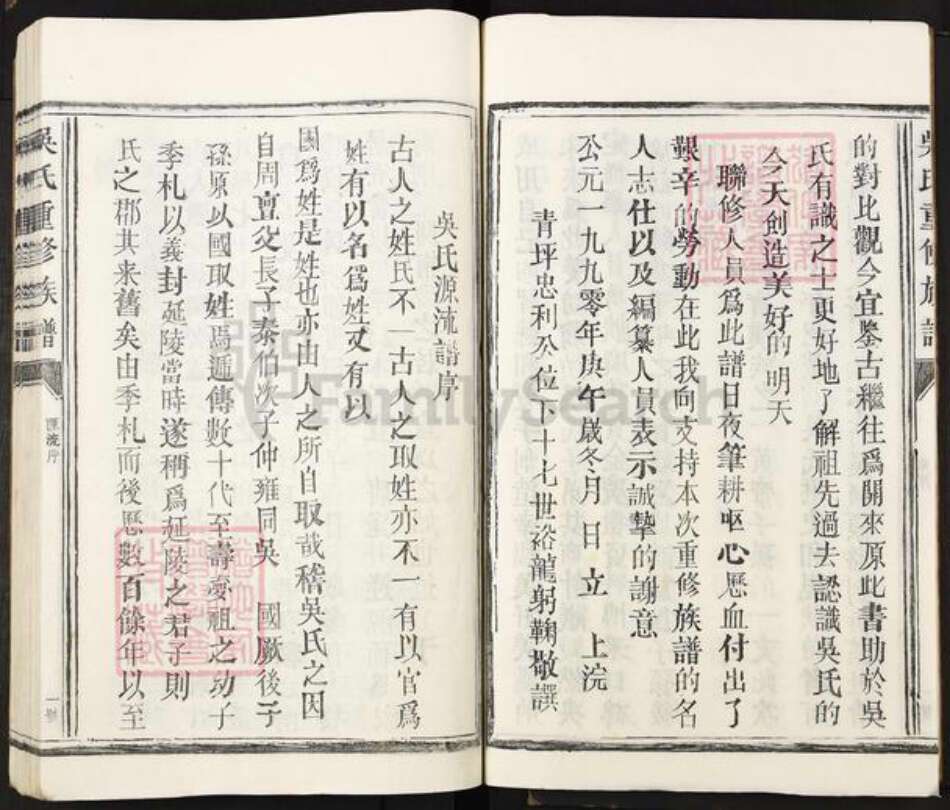 的對比觀今宜鑒古繼往爲開來原此書助於吳
氏有識之士更好地了解祖先過去認識吳氏的
今天創造美好的明天
聯修人員爲此譜日夜筆耕嘔心歷血付出了
艱辛的勞動在此我向支持本次重修族譜的名
人志仕以及編纂人員表示誠摯的謝意
公元一九九零年庚午歲冬月日立上浣
青坪忠利公位下十七世裕龍躬鞠敬譔
吳氏源流譜序
古人之姓氏不一古人之取姓亦不一有以官爲
姓有以名爲姓又有以
國爲姓是姓也亦由人之所自取哉稽吳氏之因
自周亶父長子泰伯次子仲雍同吳 國厥後子
孫原以國取姓焉遞傳數十代至壽夢祖之幼子
季札以義封延陵當時遂稱爲延陵之君子則
氏之郡其来舊矣由季札而後歷數百餘年以至
吳氏重修族譜
源流序
一號
FamilySearch